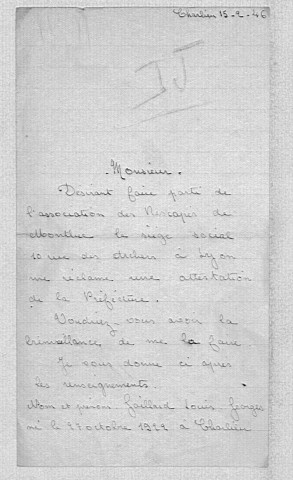 Charlieu 15-2-46
IJ
- Monsieur.
Désirant faire partie de
l'association des Rescapés de
Montluc le siège social
10 rue des Archers à Lyon
me réclame une attestation
de la Préfecture.
Voudriez vous avoir la
bienveillance de me la faire
Je vous donne ci après
les renseignements.
Nom et prénoms Gaillard Louis Georges
né le 22 octobre 1922 à Charlieu